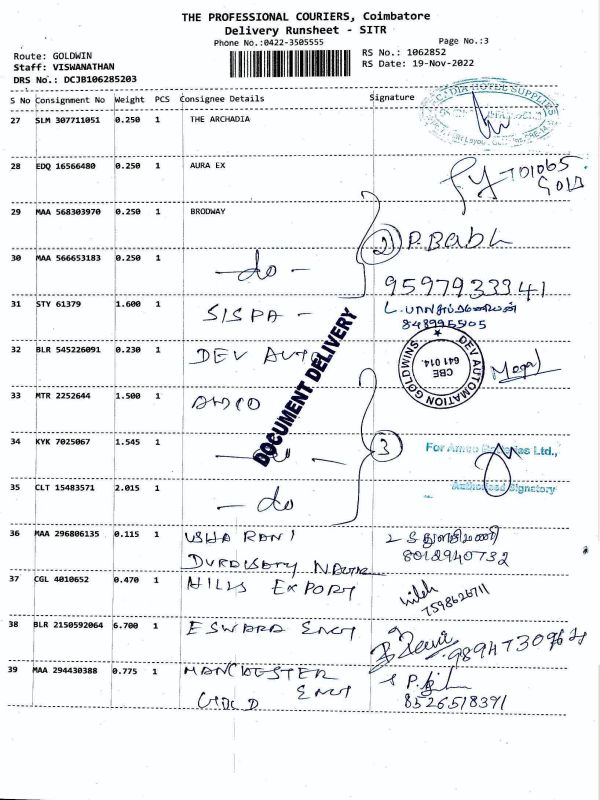 THE PROFESSIONAL COURIERS, Coimbatore
Delivery Runsheet - SITR
Phone No.:0422-3505555
Page No.:3
Route: GOLDWIN
RS No.: 1062852
Staff: VISWANATHAN
RS Date: 19-Nov-2022
DRS No.: DCJB106285203
S No Consignment No Weight PCS Consignee Details Signature
27 SLM 307711051 0.250 1 THE ARCHADIA
28 EDQ 16566480 0.250 1 AURA EX
29 MAA 568303970 0.250 1 BRODWAY
2 P. Babu
30 MAA 566653183 0.250 1 - do -
9597933341
31 STY 61379 1.600 1 SISPA -
8489955505
32 BLR 545226091 0.230 1 DEV AUTO
DEV AUTOMATION GOLDWINS
CBE
641 014.
DOCUMENT DELIVERY
33 MTR 2252644 1.500 1 AMCO
34 KYK 7025067 1.545 1 - do -
3
For Amco Batteries Ltd.,
Authorised Signatory
35 CLT 15483571 2.015 1 - do
36 MAA 296806135 0.115 1 USHA RANI
துளசிமணி
8012940732
37 CGL 4010652 0.470 1 HILLS EXPORT
7598626711
38 BLR 2150592064 6.700 1 ESWARA ENGY
39 MAA 294430388 0.775 1 MANCHESTER
ENGY
GOLD
8526518391